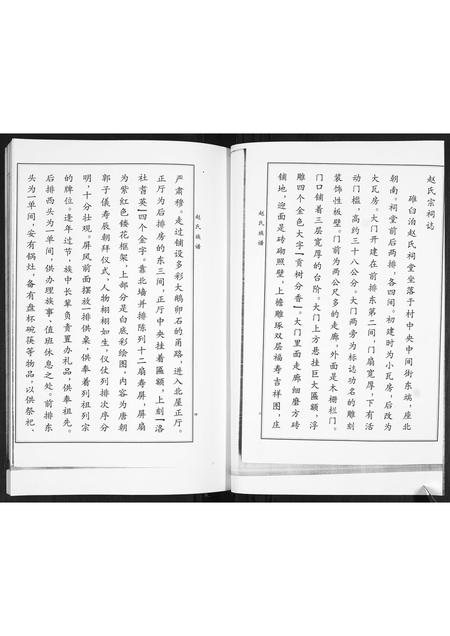 赵氏宗祠志
碓臼泊赵氏祠堂坐落于村中央中间街东端，座北
朝南。祠堂前后两排，各四间。初建时为小瓦房，后改为
大瓦房。大门开建在前排东第二间，门扇宽厚，下有活
动门槛，高约三十八公分。大门两旁为标志功名的雕刻
装饰性板壁。门前为两公尺多的走廊，外面是木栅栏门。
门口铺着三层宽厚的台阶。大门上方悬挂巨大匾额，浮
雕四个金色大字【贡树分香】。大门里面走廊细磨方砖
铺地，迎面是砖砌照壁，上檐雕琢双层福寿吉祥图，庄
赵氏族谱
严肃穆。走过铺设多彩大鹅卵石的甬路，进入北屋正厅。
正厅为后排房的东三间，正厅中央挂着匾额，上刻【洛
社耆英】四个金字。靠北墙并排陈列十二扇寿屏，屏扇
为紫红色镂花框架，上部分是白底彩绘图，内容为唐朝
郭子儀寿辰朝拜仪式，人物栩栩如生，仪仗列排次序分
明，十分壮观。屏风前面摆放一排供桌，供奉着列祖列宗
的牌位。逢年过节，族中长辈负责置办礼品，供奉祖先。
后排西头为一单间，供办理族事、值班休息之处。前排东
头为一单间，安有锅灶，备有盘杯碗筷等物品，以供祭祀、
赵氏族谱